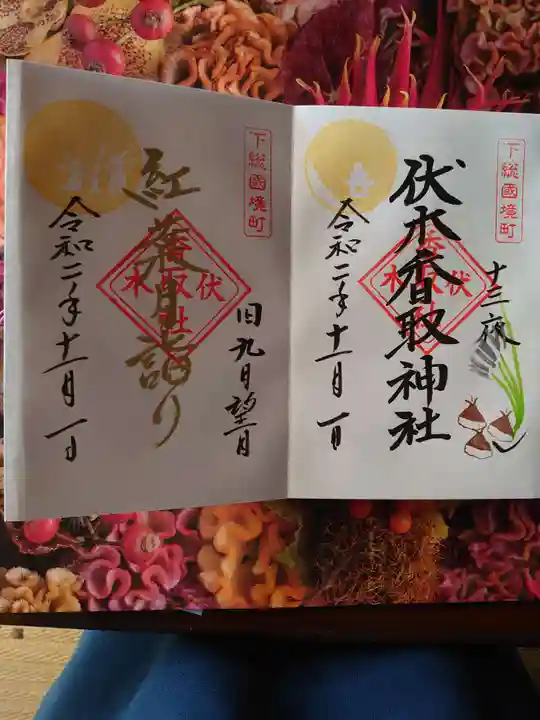 下総國境町
十三夜
伏木香取神社
伏木香取社
令和二年十一月一日
下総國境町
旧九月望月
紅葉月詣り
伏木香取社
令和二年十一月一日